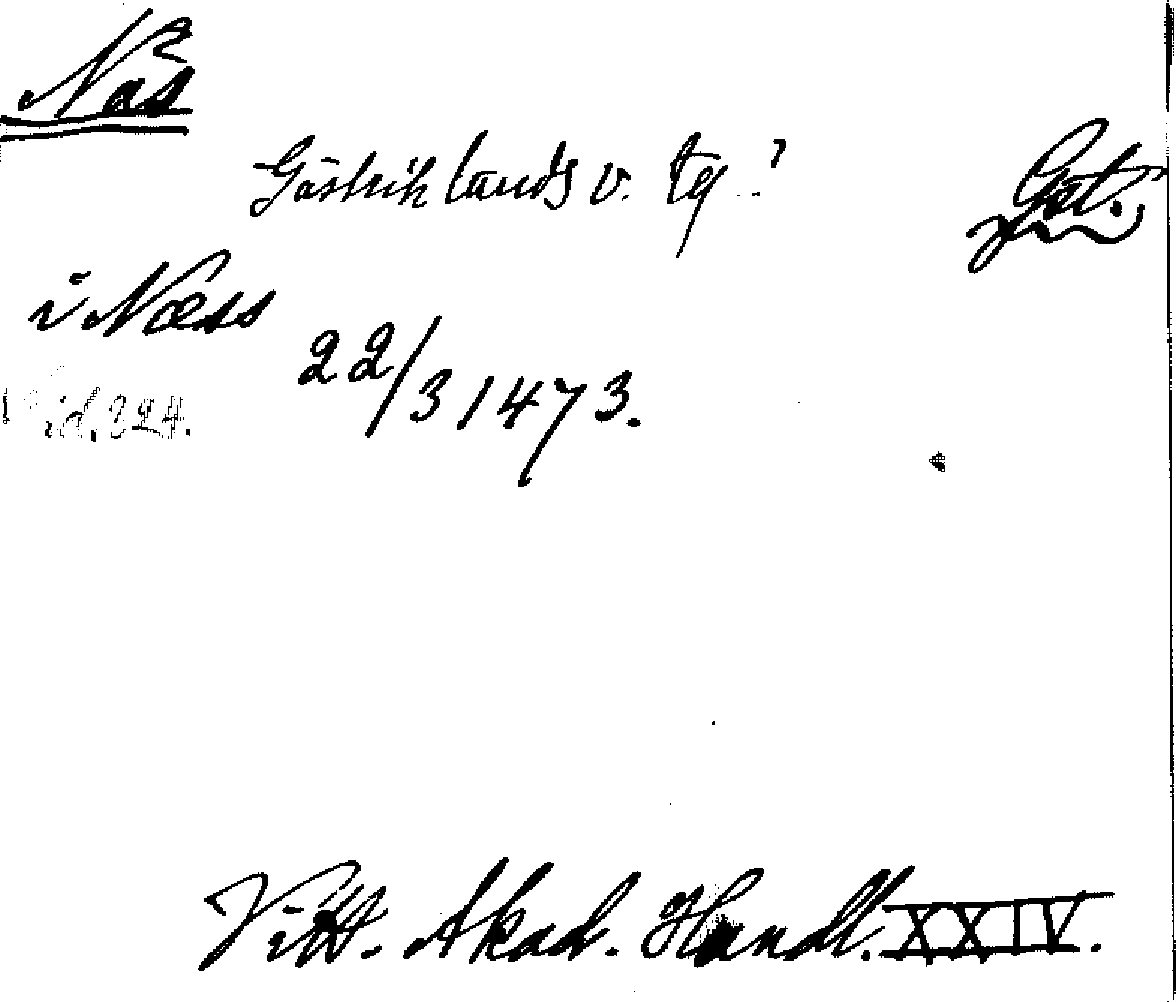 Näs
Gästriklands v. tg ..?
Gst.
i Næss
22/3 1473.
sid. 324.
Vitt. Akad. Handl. XXIV.